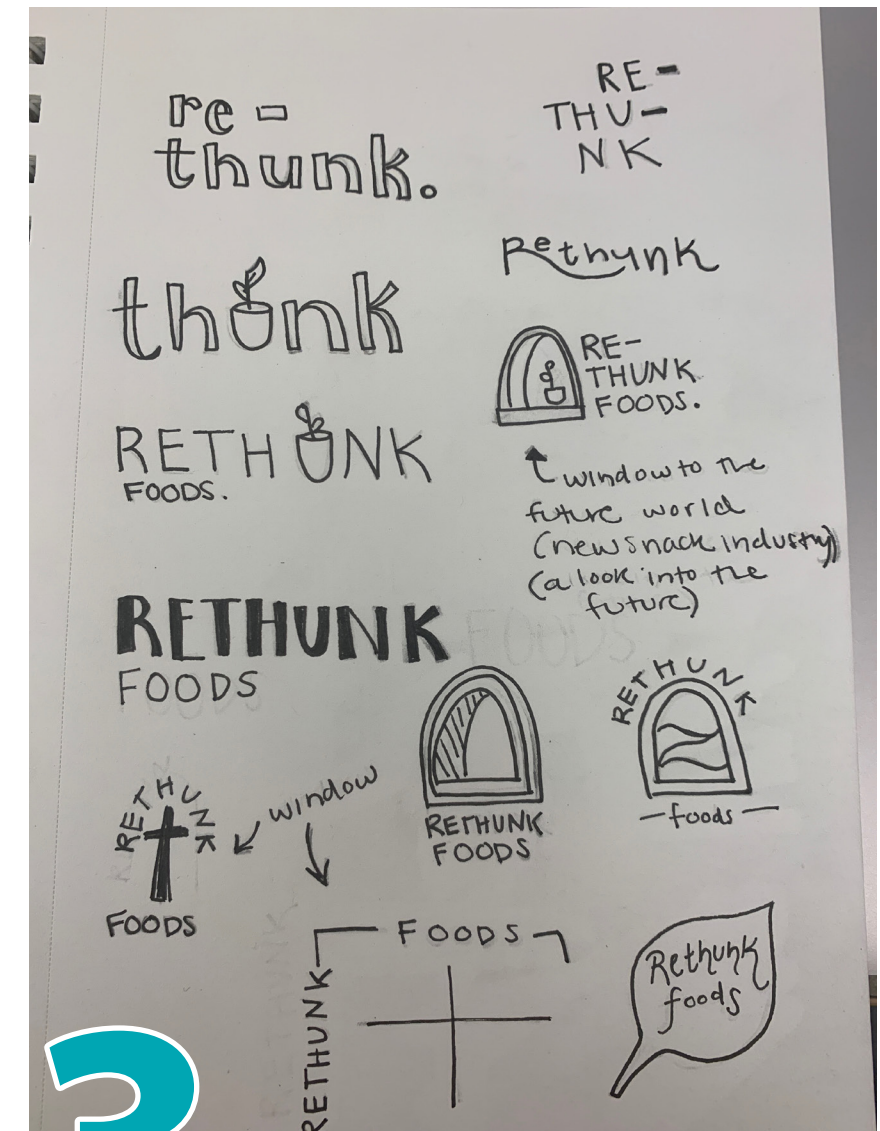 re-
thunk.
RE-
THU-
NK
thunk
Rethunk
RE-
THUNK
FOODS.
RETHUNK
FOODS.
window to the
future world
(new snack industry)
(a look into the
future)
RETHUNK
FOODS
RETHUNK
FOODS
RETHUNK
-foods-
RETHUNK
FOODS
window
FOODS
RETHUNK
Rethunk
foods